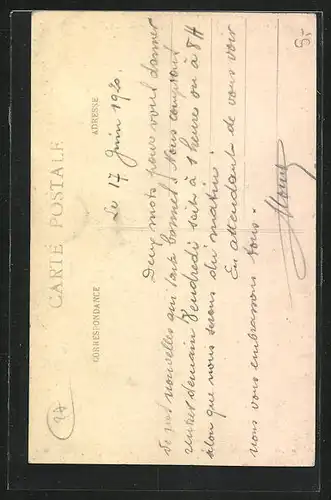 CARTE POSTALE
CORRESPONDANCE
ADRESSE
Le 17 Juin 1920
Deux mots pour vous donner
de nos nouvelles qui sont bonnes. Nous comptons
rentrer demain Vendredi soit à 1 heures ou à 8H
selon que nous serons du matins
En attendant de vous voir
nous vous embrassons tous.
27